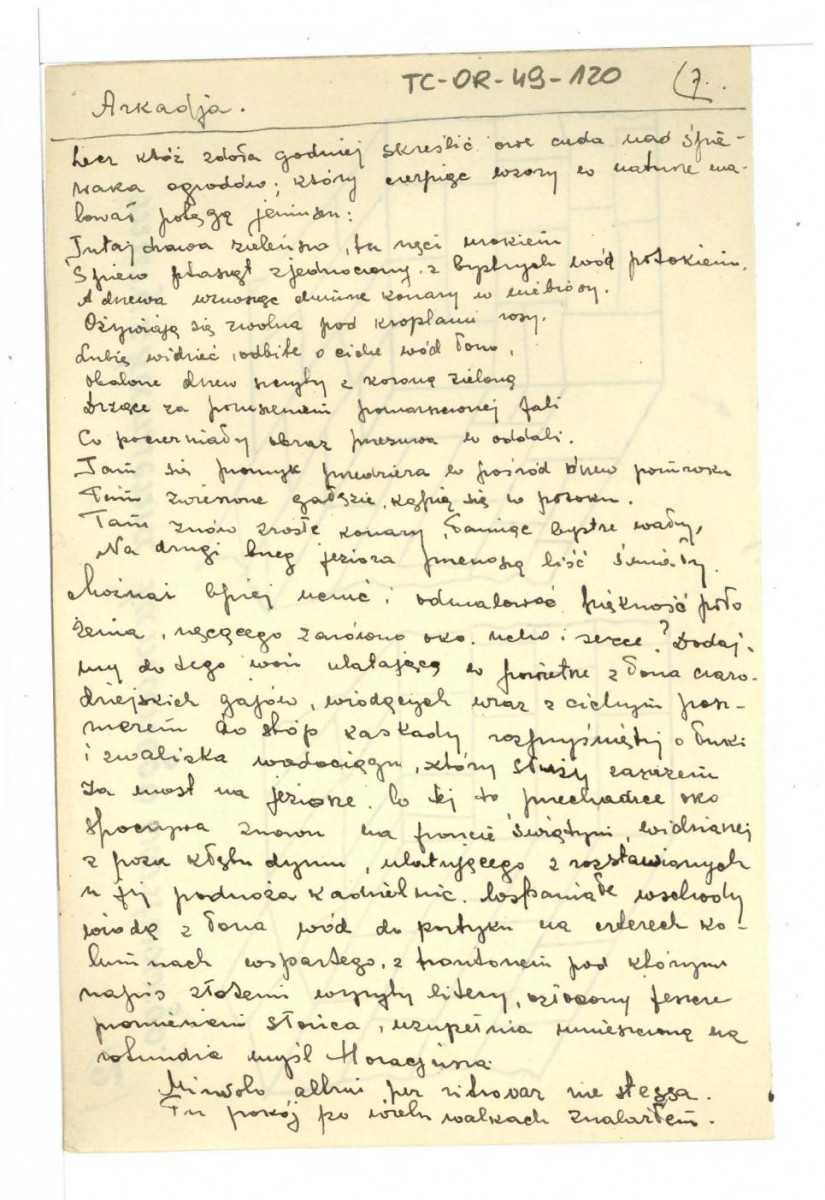 TC-OR-49-120 (7.
Arkadja.
Lecz któż zdoła godniej skreślić owe cuda nad śpie-
waka ogrodów; który czerpiąc wzory w naturze ma-
lował potęgą jeniusu:
Tutaj chowa zieleństwo, tu nęci urokiem
Śpiew ptasząt zjednoczony z bystrych wód potokiem,
A drzewa wznosząc dumne konary w niebiosy.
Ożywiają się zwolna pod kroplami rosy.
Lubię widzieć, odbite o ciche wód łono,
obalone drzew szczyty z koroną zieloną
Drżące za poruszeniem pomarszczonej fali
Co poczerniały obraz przesuwa w oddali.
Tam się promyk przedziera w pośród drzew pomroku
Tam zwieszone gałęzie, kąpią się w potoku.
Tam znów zrosłe konary, łamiąc bystre wały,
Na drugi brzeg jeziora przenoszą liść śmiały.
Możnaż lepiej uczuć i odmalować piękność poło
żenia, nęcącego zarówno oko. ucho i serce? Dodaj-
my do tego woń ulatającą w powietrze z łona czaro-
dziejskich gajów, wiodących wraz z cichym posz-
merem do stóp kaskady rozpryśniętej o łuki
i zwaliska wodociągu, który służy zarazem
za most na jeziorze. Po tej to przechadzce oko
spoczywa znowu na froncie świątyni, widzianej
z poza kłębu dymu, ulatującego z rozstawionych
u jej podnóża kadzielnic. Wspaniałe wschody
wiodą z łona wód do portyku na czterech ko-
lumnach wspartego, z frontonem pod którym
napis złotemi wyryty litery, ozłocony jeszcze
promieniami słońca, uzupełnia umieszczoną na
rotundzie myśl Horacjusza.
M'involo altrui per ritrovar me stessa.
Tu pokój po wielu walkach znalazłem.